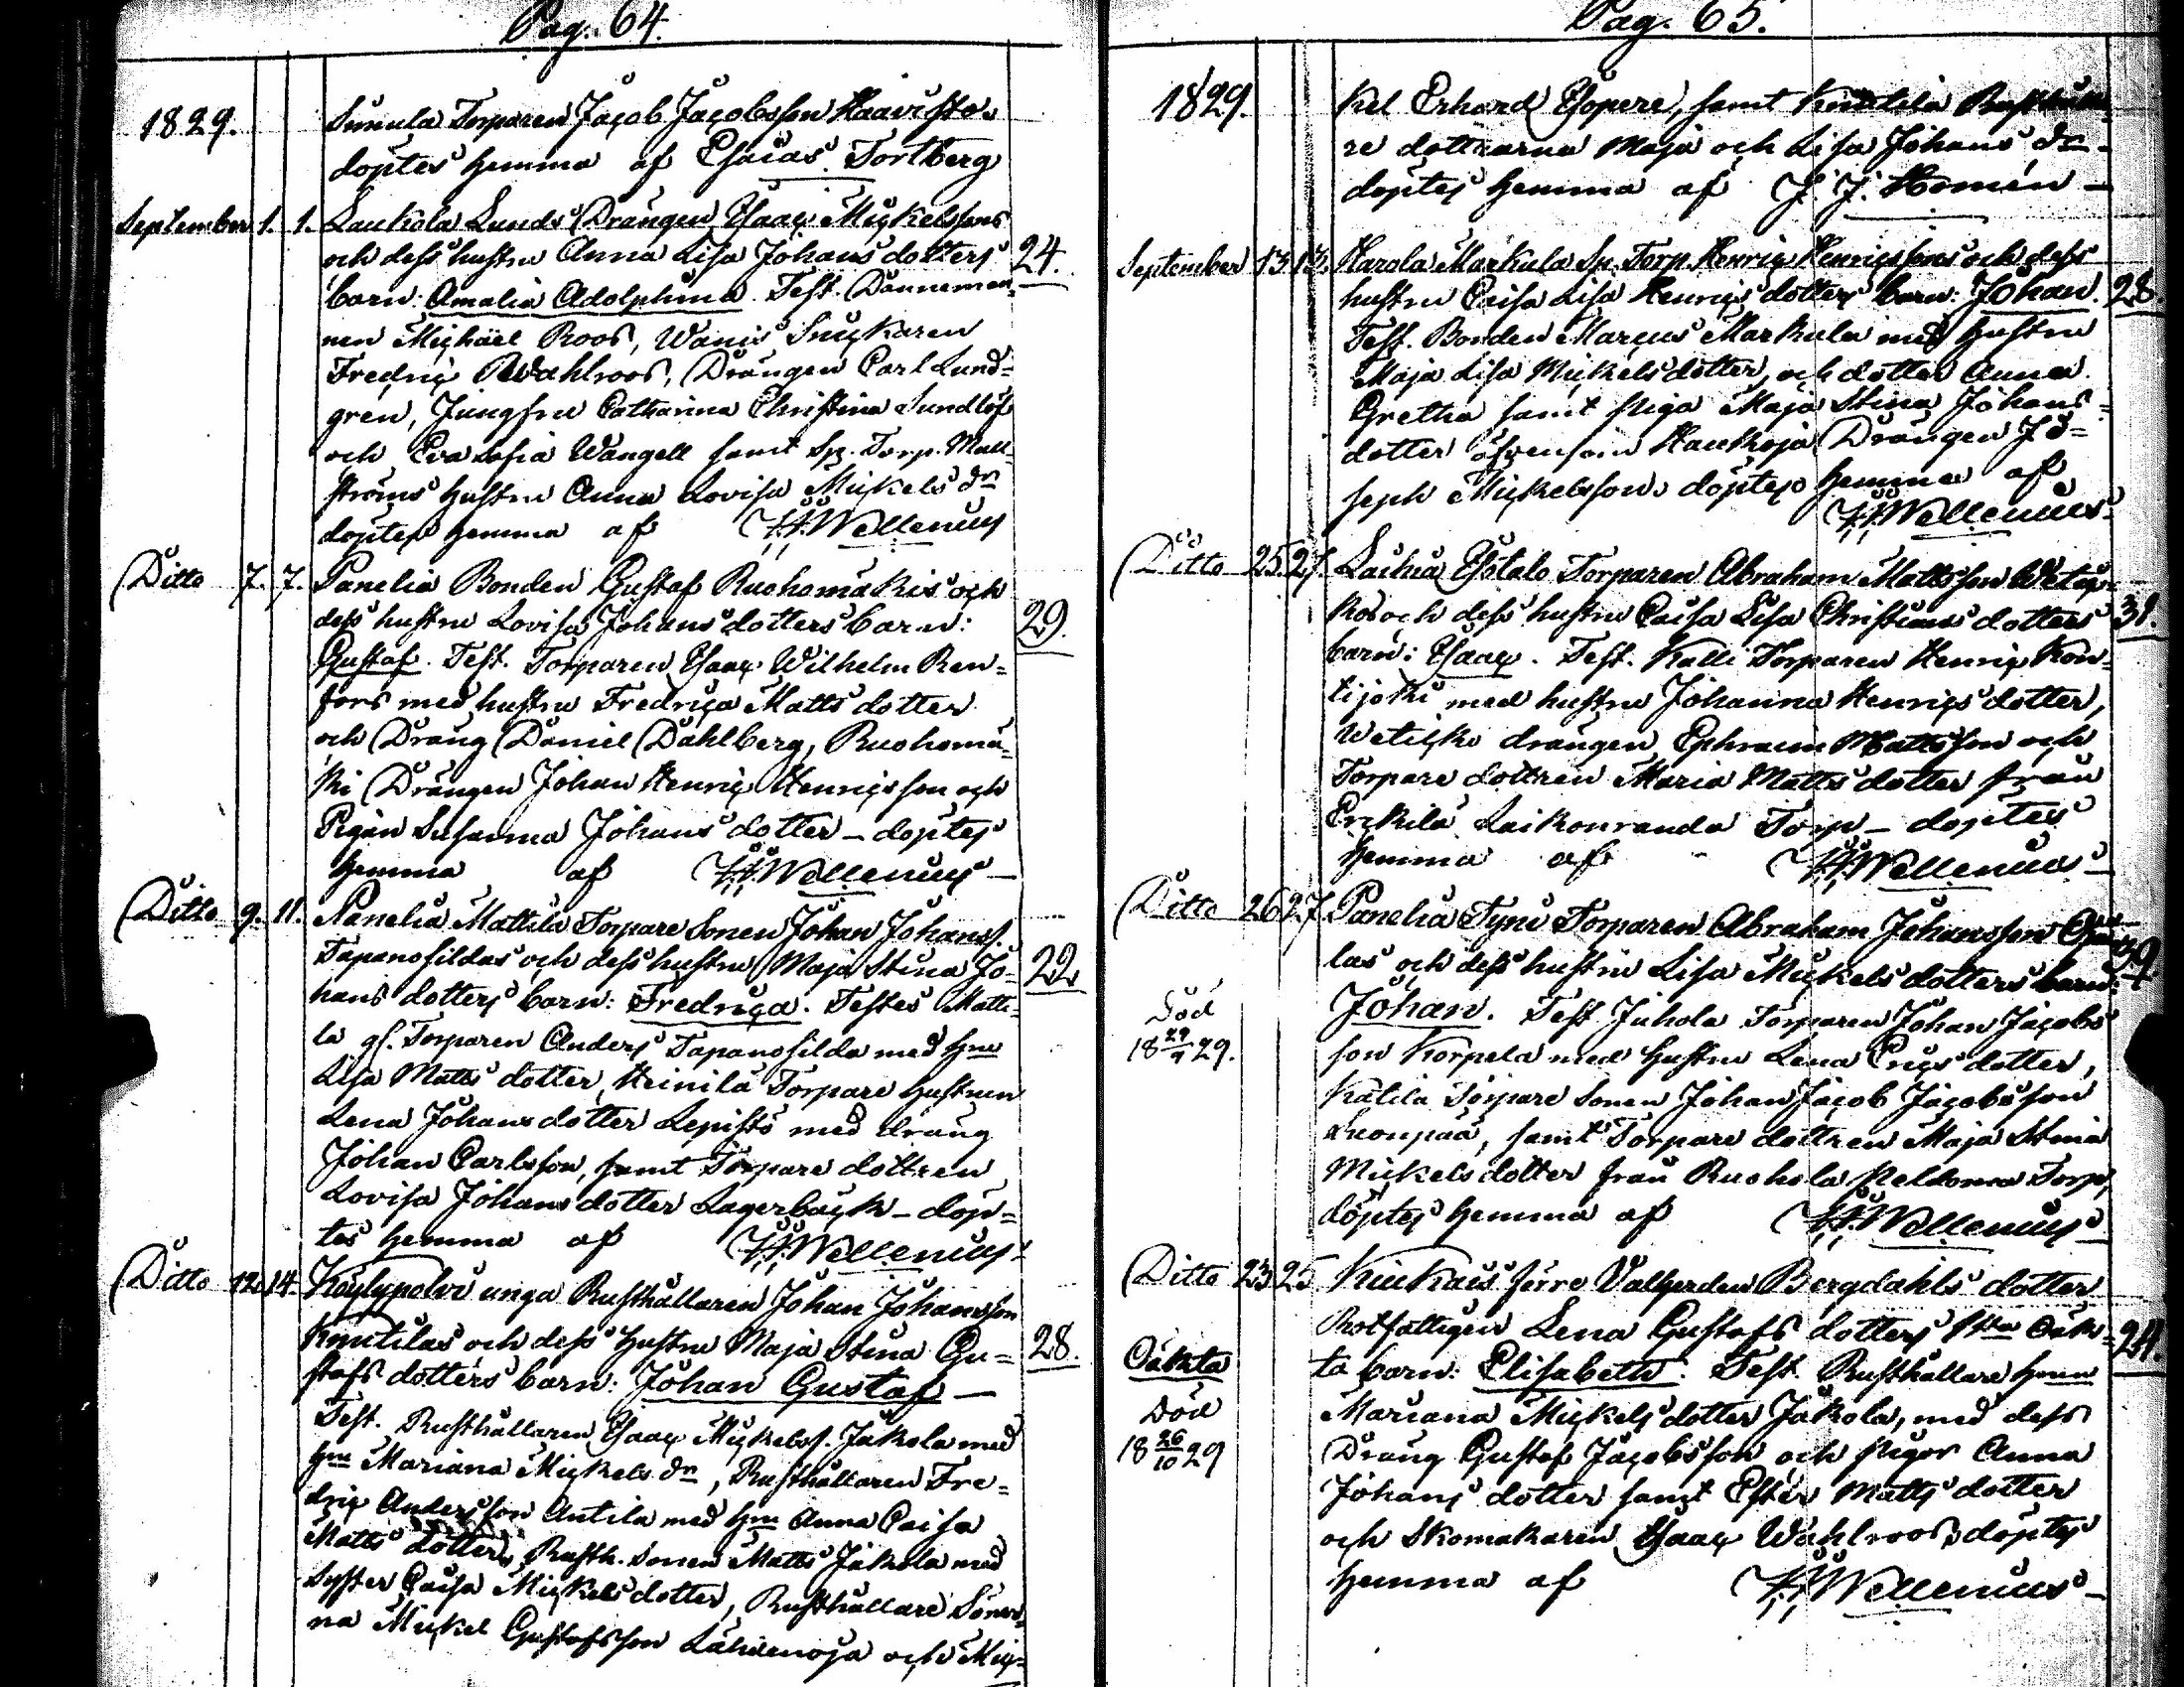 Pag. 64.
1829.
Sunula Torparen Jacob Jacobsson Haavistos
döptes hemma af Esaias Tortberg
September 1. 1. Laukola Lunds Drängen Isaac Mickelssons
och dess hustru Anna Lisa Johans dotters 24.
barn: Amalia Adolphina. Test. Danneman-
nen Michael Roos, Wanis Snickaren
Fredric Wahlroos, Drängen Carl Lund=
gren, Jungfru Catharina Christina Sundlöf
och Eva Sofia Wangell samt Sp. Torp. Mall-
ströms hustru Anna Lovisa Mickels dr
döptes hemma af H. H. Wellenius
Ditto 7. 7. Panelia Bonden Gustaf Ruohomäkis och
dess hustru Lovisa Johans dotters barn: 29.
Gustaf. Test. Torparen Isaac Wilhelm Ren=
fors med hustru Fredrica Matts dotter
och Dräng Daniel Dahlberg, Ruohomä-
ki Drängen Johan Henric Henricsson och
Pigan Susanna Johans dotter – döptes
hemma af H. H. Wellenius –
Ditto 9. 11. Panelia Mattila Torpare Sonen Johan Johanss.
Tapanosildas och dess hustru Maja Stina Jo- 22
hans dotters barn: Fredrica. Testes Matti-
la gl. Torparen Anders Tapanosilda med hru
Lisa Matts dotter, Heinilä Torpare hustrun
Lena Johans dotter Lepistö med dräng
Johan Carlsson, samt Torpare dottren
Lovisa Johans dotter Lagerbäck – döp=
tes hemma af H. H. Wellenius
Ditto 12. 14. Köylypolvi unga Rusthållaren Johan Johansson
Knutilas och dess hustru Maja Stina Gu= 28.
stafs dotters barn: Johan Gustaf –
Test. Rusthållaren Isaac Mickelss. Jakola med
hru Mariana Mickels dr, Rusthållaren Fre=
dric Andersson Antila med hru Anna Caisa
Matts dotter, Rusth. sonen Matts Jakola med
Syster Caisa Mickels dotter, Rusthållare Söner-
na Mickel Gustafsson Lähdenoja och Mic=
Pag. 65.
1829.
kel Erhard Esopere, samt Knutila Rusthålla-
re döttrarna Maja och Lisa Johans dr
döptes hemma af J. J. Homén –
September 13 13. Harola Markula Sp. Torp. Henric Henricssons och dess
hustru Caisa Lisa Henrics dotters barn: Johan. 28.
Test. Bonden Marcus Markula med hustru
Maja Lisa Mickels dotter, och dotter Anna
Gretha samt piga Maja Stina Johans=
dotter äfvensom Haukoja Drängen Jo=
seph Mickelsson, döptes hemma af
H. H. Wellenius
Ditto 25 27. Laihia Isotalo Torparen Abraham Mattsson Wetic-
kos och dess hustru Caisa Lisa Christians dotters 31.
barn: Isaac. Test. Kalli Torparen Henric Kon-
tijoki med hustru Johanna Henrics dotter,
Weticko drängen Ephraim Mattsson och
Torpare dottren Maria Matts dotter från
Erckilä Laikonranda Torp – döptes
hemma af H. H. Wellenius –
Ditto 26 27 Panelia Tyni Torparen Abraham Johansson
las och dess hustru Lisa Mickels dotters barn: 39.
Död
18 29/9 29.
Johan. Test. Juhola Torparen Johan Jacobs
son Korpela med hustru Lena Erics dotter,
Kätilä Torpare sonen Johan Jacob Jacobsson
Luonpää, samt Torpare dottren Maja Stina
Mickels dotter från Ruohola Keldoma Torp,
döptes hemma af H. H. Wellenius
Ditto 23 25 Kiukais förre Dalgerden Bergdahls dotter
Rotfattigen Lena Gustafs dotters 1sta Oäk= 24.
Oäkta
Död
18 26/10 29
ta barn: Elisabeth. Test. Rusthållare hrun
Mariana Mickels dotter Jakola, med dess
Dräng Gustaf Jacobsson och pigor Anna
Johans dotter samt Ester Matts dotter
och Skomakaren Isaac Wahlroos, döptes
hemma af H. H. Wellenius –